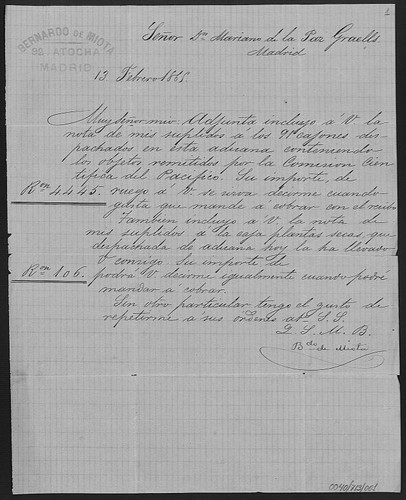 1
BERNARDO DE MIOTA
92 ATOCHA
MADRID
Señor Dn Mariano de la Paz Graells
Madrid
13 Febrero 1865
Muy señor mio: Adjunta incluyo á V la
nota de mis suplidos á los 91 cajones des-
pachados en esta aduana conteniendo
los objetos remitidos por la Comision Cien-
tifica del Pacifico. Su importe de
Ron 4445. ruego á V se sirva decirme cuando
gusta que mande a cobrar con el recibo
Tambien incluyo á V. la nota de
mis suplidos á la caja plantas secas, que
despachada de aduana hoy la ha llevado
V consigo. Su importe de
Ron 106. podrá V. decirme igualmente cuando podré
mandar á cobrar.
Sin otro particular tengo el gusto de
repetirme á sus ordenes S. S.
Q. S. M. B.
Bdo de Miota
0040/713/001